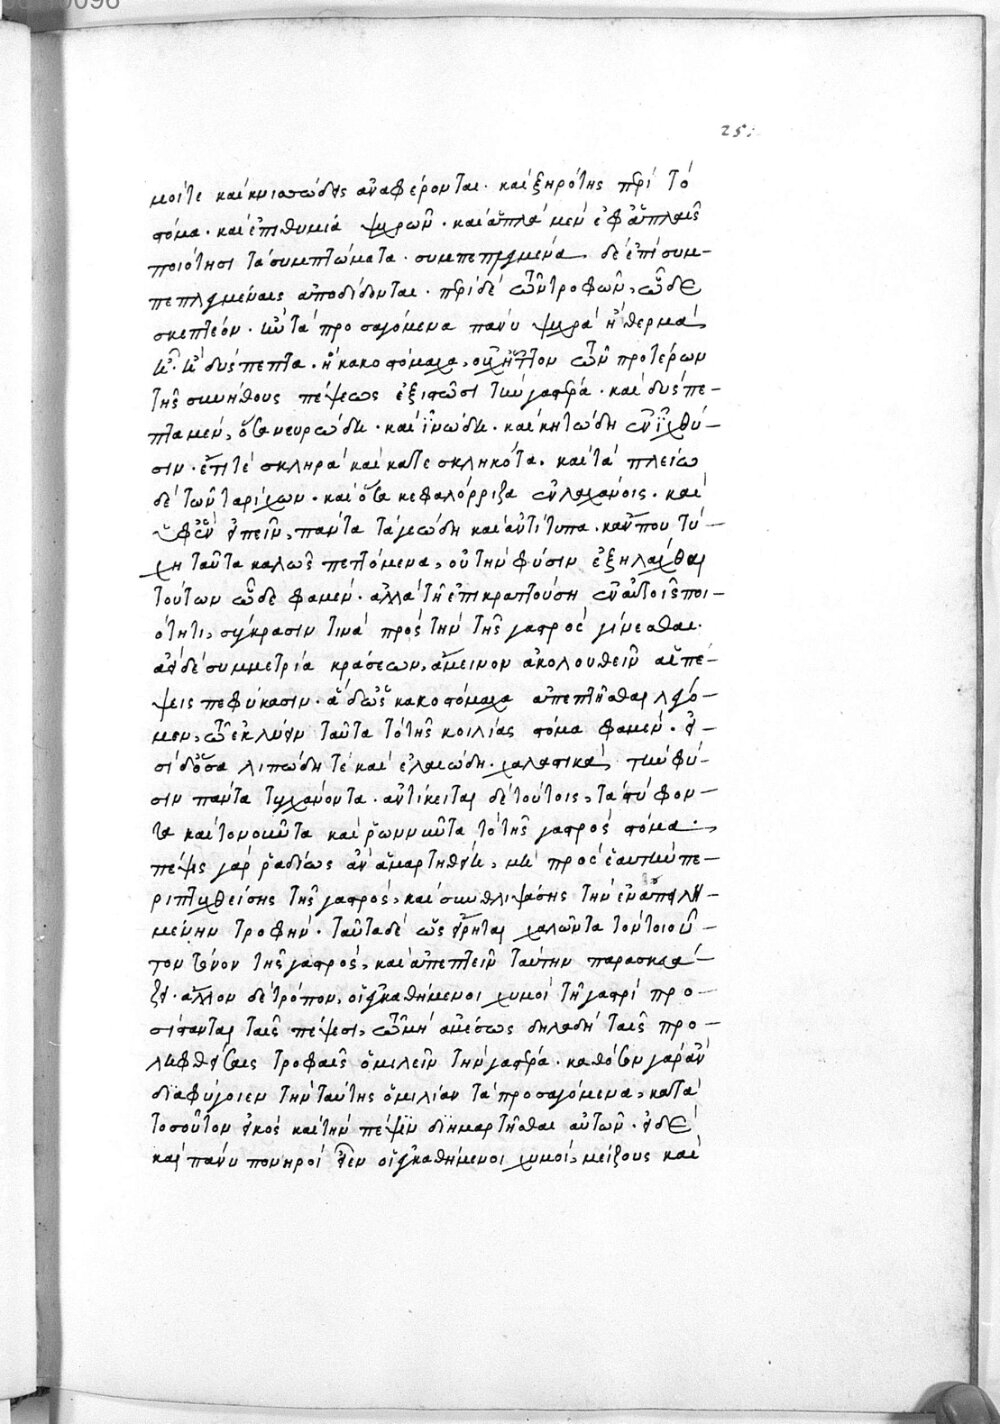 251
μοί τε καὶ κνισσώδεις ἀναφέρονται· καὶ ξηρότης περὶ τὸ
στόμα· καὶ ἐπιθυμία ψυχρῶν· καὶ ἁπλᾶ μὲν ἐφ ἁπλαῖς
ποιότησι τὰ συμπτώματα· συμπεπλεγμένα δὲ ἐπὶ συμ-
πεπλεγμέναις ἀποδίδονται· περὶ δὲ τῶν τροφῶν, ὧδε
σκεπτέον· εἰ τὰ προσαγόμενα πάνυ ψυχρὰ ἢ θερμὰ,
καὶ δύσπεπτα· ἢ κακοστόμαχα, οὐχ ἧττον τῶν προτέρων
τῆς συνήθους πέψεως ἐξιστῶσι τὴν γαστέρα· καὶ δύσπε-
πτα μὲν, ὅσα νευρώδη· καὶ ἰνώδη· καὶ κητώδη ἐν ἰχθύ-
σιν· ἔτι τὲ σκληρὰ καὶ κατεσκληκότα· καὶ τὰ πλείω
δὲ τῶν ταρίχων· καὶ ὅσα κεφαλόρριζα ἐν λαχάνοις· καὶ
ὡς ἐφ ἓν εἰπεῖν, πάντα τὰ γεώδη καὶ ἀντίτυπα· κἄν που τύ-
χῃ ταῦτα καλῶς πεπτόμενα, οὐ τὴν φύσιν ἐξηλλάχθαι
τούτων ὧδε φαμέν· ἀλλὰ τῇ ἐπικρατούσῃ ἐν αὐτοῖς ποι-
ότητι, σύγκρασιν τινὰ πρὸς τὴν τῆς γαστρὸς γίνεσθαι·
ἀεὶ δὲ συμμετρία κράσεων, ἄμεινον ἀκολουθεῖν αἱ πέ-
ψεις πεφύκασιν· ἃ δ ὡς κακοστόμαχα ἀπεπτεῖσθαι λέγο-
μεν, τῷ ἐκλύειν ταῦτα τὸ τῆς κοιλίας στόμα φαμέν· εἰ-
σὶ δ ὅσα λιπώδη τὲ καὶ ἐλαιώδη, χαλαστικὰ τὴν φύ-
σιν πάντα τυγχάνοντα· ἀντίκειται δὲ τούτοις, τὰ στύφον-
τα καὶ τονοῦντα καὶ ῥωννῦντα τὸ τῆς γαστρὸς στόμα·
πέψις γὰρ ῥαδίως ἂν ἁμαρτηθείη, μὴ πρὸς ἑαυτὴν πε-
ριπτυχθείσης τῆς γαστρὸς, καὶ συνθλιψάσης τὴν ἐναπειλη-
μένην τροφήν· ταῦτα δὲ ὡς εἴρηται χαλῶντα τὸν τοιοῦ-
τον τόνον τῆς γαστρὸς, καὶ ἀπεπτεῖν ταύτην παρασκευά-
ζει· ἄλλον δὲ τρόπον, οἱ ἐγκαθήμενοι χυμοὶ τῇ γαστρὶ προ-
σίστανται ταῖς πέψεσι, τῷ μὴ ἀμέσως δηλαδὴ ταῖς προ-
ληφθείσαις τροφαῖς ὁμιλεῖν τὴν γαστέρα· καθόσον γὰρ ἂν
διαφύγοιεν τὴν ταύτης ὁμιλίαν τὰ προσαγόμενα, κατὰ
τοσοῦτον εἰκὸς καὶ τὴν πέψιν διημαρτῆσθαι αὐτῶν· εἰ δὲ
καὶ πάνυ πονηροὶ εἶεν οἱ ἐγκαθήμενοι χυμοὶ, μείζους καὶ